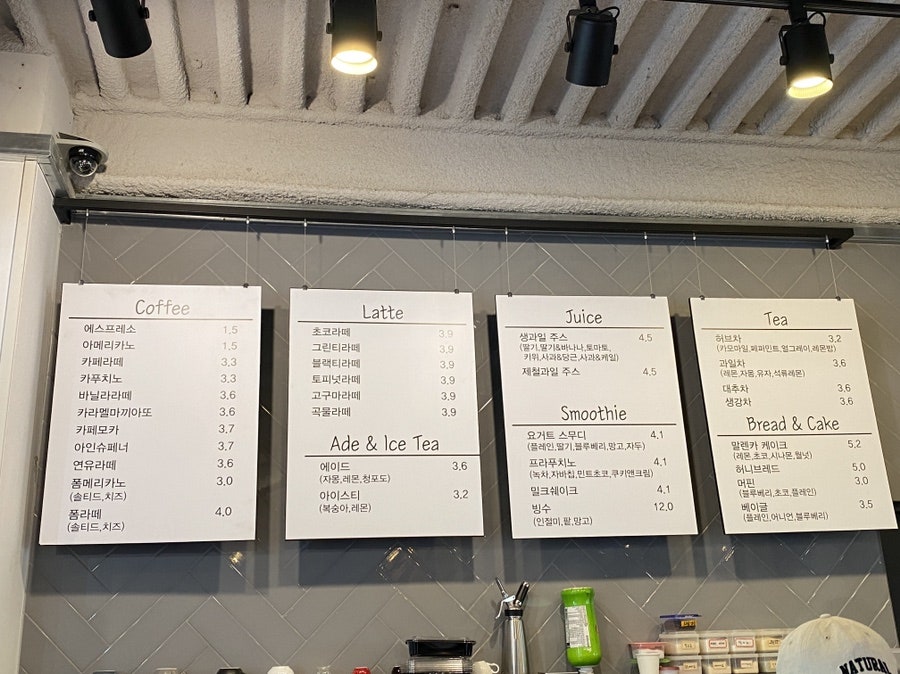 Coffee
에스프레소 1,5
아메리카노 1,5
카페라떼 3,3
카푸치노 3,3
바닐라라떼 3,6
카라멜마끼아또 3,6
카페모카 3,7
아인슈페너 3,7
연유라떼 3,6
폼메리카노 3,0
(솔티드,치즈)
폼라떼 4,0
(솔티드,치즈)
Latte
초코라떼 3,9
그린티라떼 3,9
블랙티라떼 3,9
토피넛라떼 3,9
고구마라떼 3,9
곡물라떼 3,9
Ade & Ice Tea
에이드 3,6
(자몽,레몬,청포도)
아이스티 3,2
(복숭아,레몬)
Juice
생과일 주스 4,5
(딸기,딸기&바나나,토마토,
키위,사과&당근,사과&케일)
제철과일 주스 4,5
Smoothie
요거트 스무디 4.1
(플레인,딸기,블루베리,망고,자두)
프라푸치노 4.1
(녹차,자바칩,민트초코,쿠키앤크림)
밀크쉐이크 4.1
빙수 12,0
(인절미,팥,망고)
Tea
허브차 3,2
(카모마일,페퍼민트,얼그레이,레몬밤)
과일차 3.6
(레몬,자몽,유자,석류레몬)
대추차 3,6
생강차 3,6
Bread & Cake
말렌카 케이크 5,2
(레몬,초코,시나몬,월넛)
허니브레드 5.0
머핀 3,0
(블루베리,초코,플레인)
베이글 3,5
(플레인,어니언,블루베리)
NATURAL